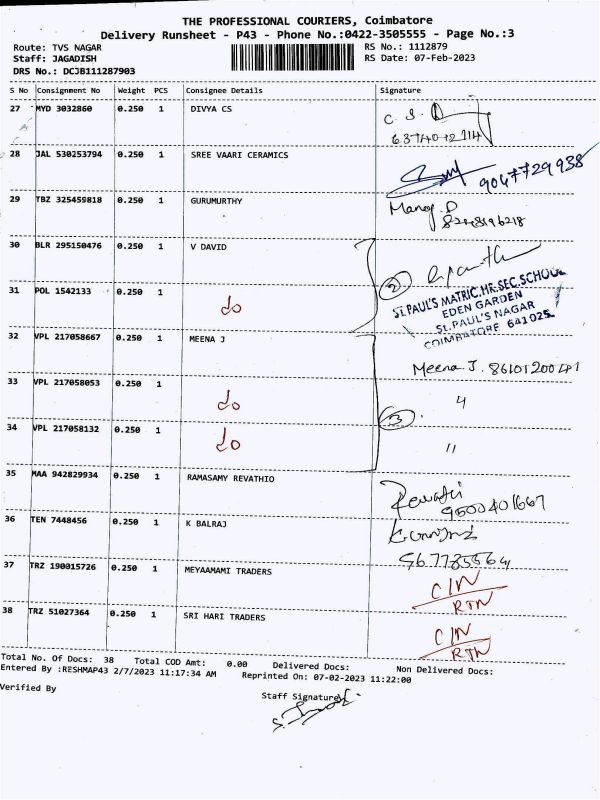 THE PROFESSIONAL COURIERS, Coimbatore
Delivery Runsheet - P43 - Phone No.:0422-3505555 - Page No.:3
Route: TVS NAGAR RS No.: 1112879
Staff: JAGADISH RS Date: 07-Feb-2023
DRS No.: DCJB111287903
S No Consignment No Weight PCS Consignee Details Signature
27 MYD 3032860 0.250 1 DIVYA CS C S
28 JAL 530253794 0.250 1 SREE VAARI CERAMICS 9047729938
29 TBZ 325459818 0.250 1 GURUMURTHY Manoj.D
8248196218
30 BLR 295150476 0.250 1 V DAVID 2
ST.PAUL'S MATRIC.HR.SEC.SCHOOL
EDEN GARDEN
ST.PAUL'S NAGAR
COIMBATORE 641025
31 POL 1542133 0.250 1 do
32 VPL 217058667 0.250 1 MEENA J Meena J.
33 VPL 217058053 0.250 1 do 3 "
34 VPL 217058132 0.250 1 do "
35 MAA 942829934 0.250 1 RAMASAMY REVATHIO Revathi
9500401667
36 TEN 7448456 0.250 1 K BALRAJ
37 TRZ 190015726 0.250 1 MEYAAMAMI TRADERS C/N
RTN
38 TRZ 51027364 0.250 1 SRI HARI TRADERS C/N
RTN
Total No. Of Docs: 38 Total COD Amt: 0.00 Delivered Docs: Non Delivered Docs:
Entered By :RESHMAP43 2/7/2023 11:17:34 AM Reprinted On: 07-02-2023 11:22:00
Verified By Staff Signature